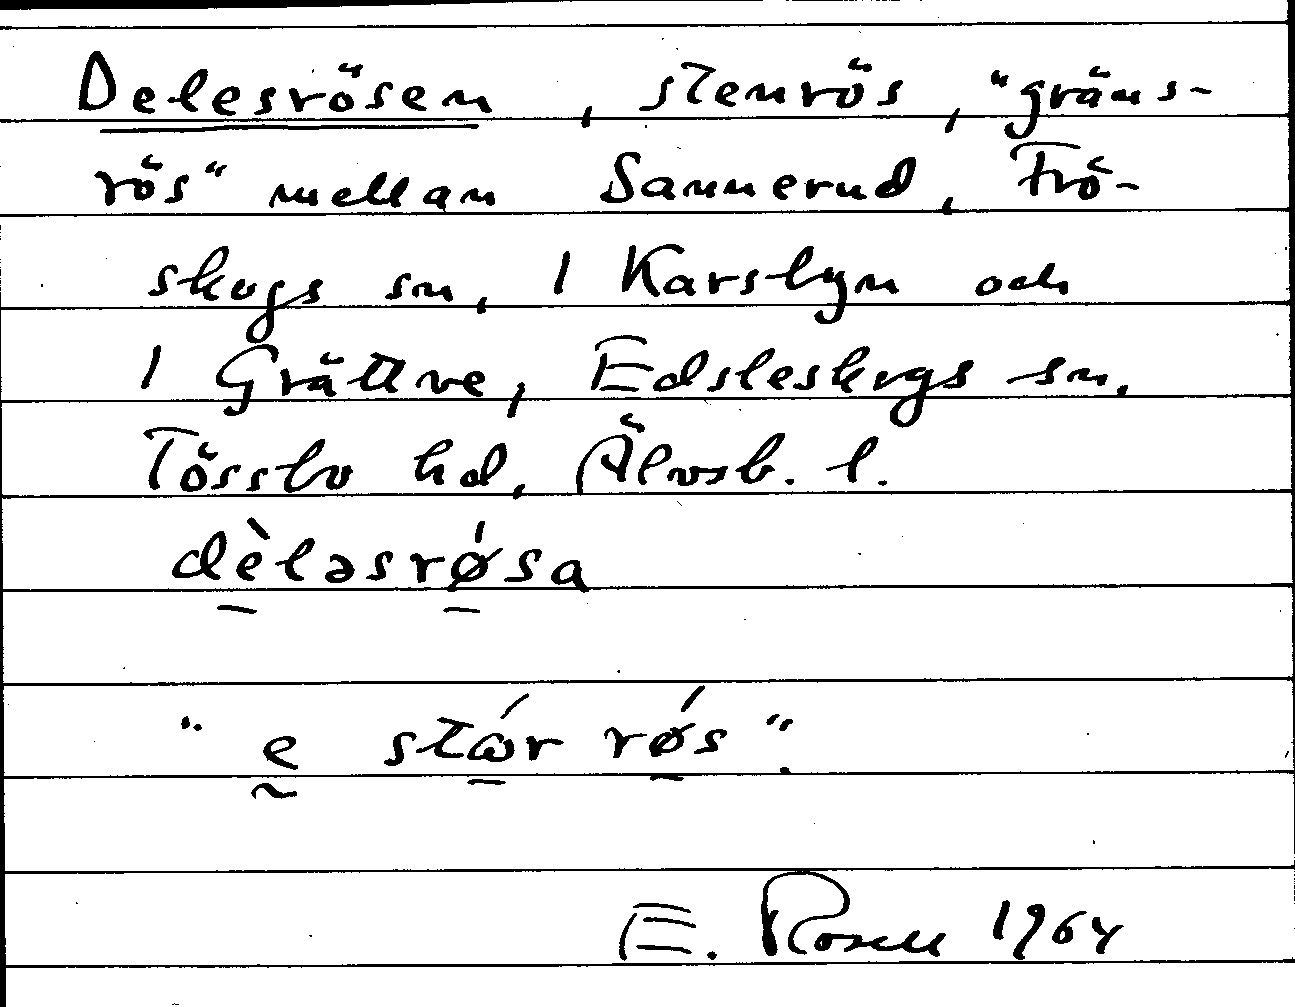 Delesrösen, stenrös, "gräns-
rös" mellan Sannerud, Frö-
skogs sn, 1 Karsbyn och
1 Grättve, Edsleskogs sn.
Tössbo hd, Älvsb. l.
dèləsrǿsa
"e stώr rǿs".
E. Rosell 1964